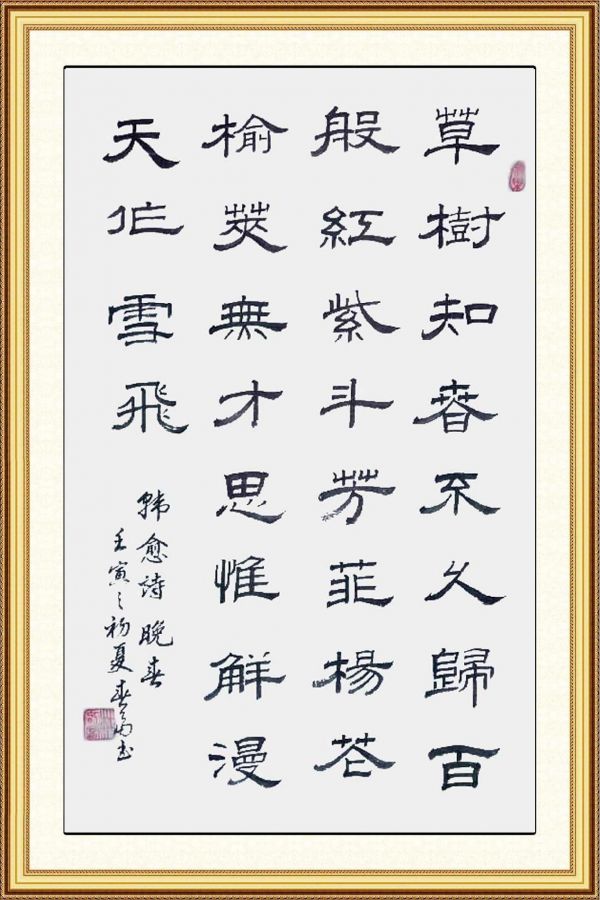 草樹知春不久歸百
般紅紫斗芳菲楊花
榆莢無才思惟解漫
天作雪飛
韩愈诗晚春
壬寅之初夏春书